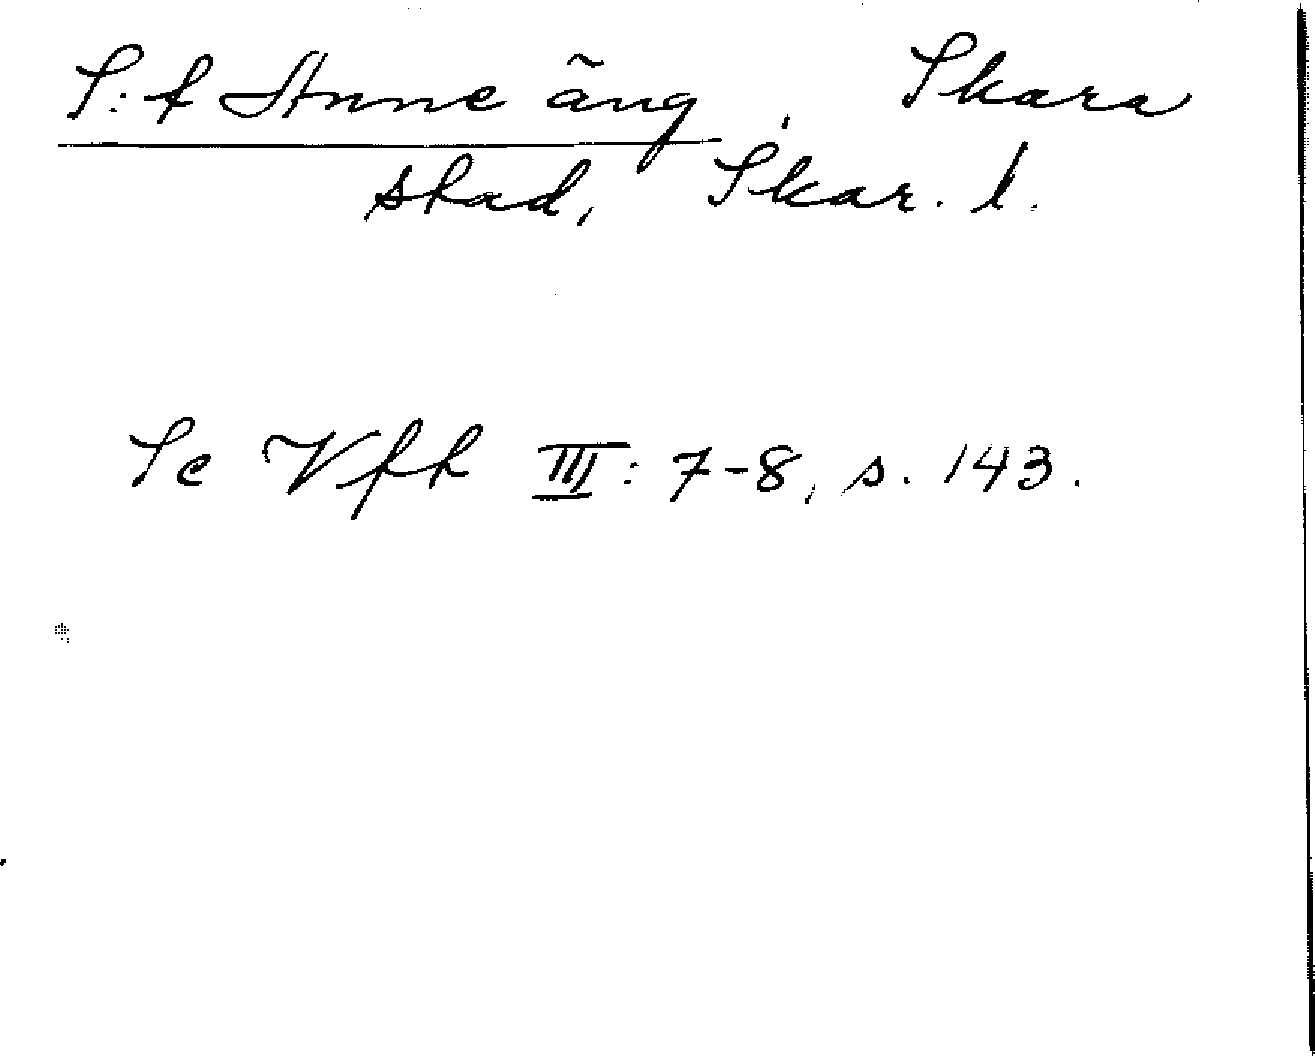 S:t Anne äng, Skara
stad, Skar. l.
Se Vfh III: 7-8, s. 143.